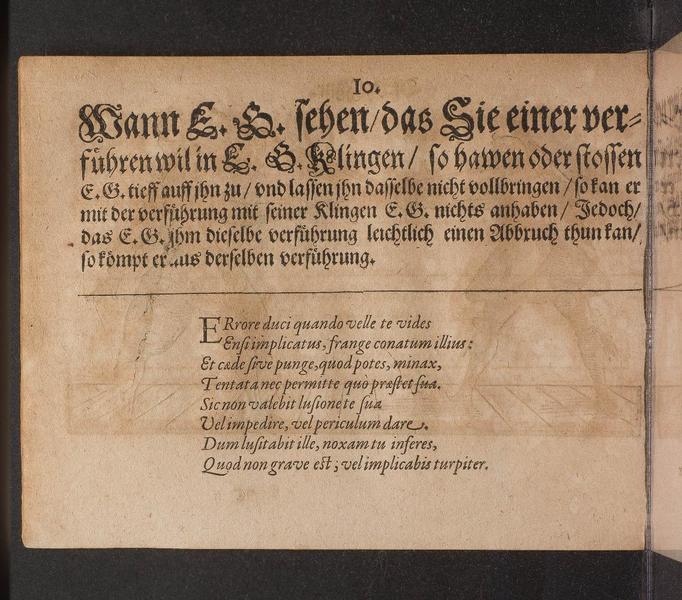 10.
Wann E. G. sehen/das Sie einer ver-
führen wil in E. G. Klingen/ so hawen oder stossen
E.G. tieff auff ihn zu/ vnd lassen ihn dasselbe nicht vollbringen/ so kan er
mit der verführung mit seiner Klingen E.G. nichts anhaben/ Jedoch/
das E.G. ihm dieselbe verführung leichtlich einen Abbruch thun kan/
so kömpt er aus derselben verführung.
ERrore duci quando velle te vides
Ensi implicatus, frange conatum illius:
Et cæde sive punge, quod potes, minax,
Tentata nec permitte quò præstet sua.
Sic non valebit lusione te sua
Vel impedire, vel periculum dare.
Dum lusitabit ille, noxam tu inferes,
Quod non grave est; vel implicabis turpiter.